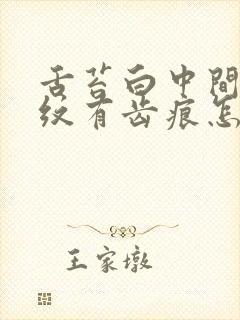 舌苔白中间
纹有齿痕怎
王家墩